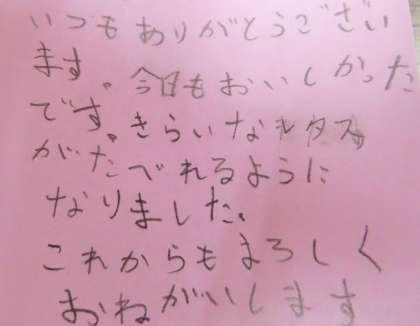 いつもありがとうござい
ます。今日もおいしかった
です。きらいなレタス
がたべれるように
なりました。
これからもよろしく
おねがいします